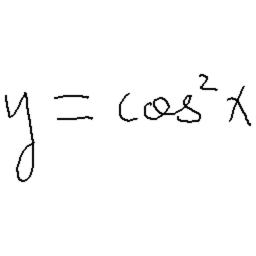 y = cos²x